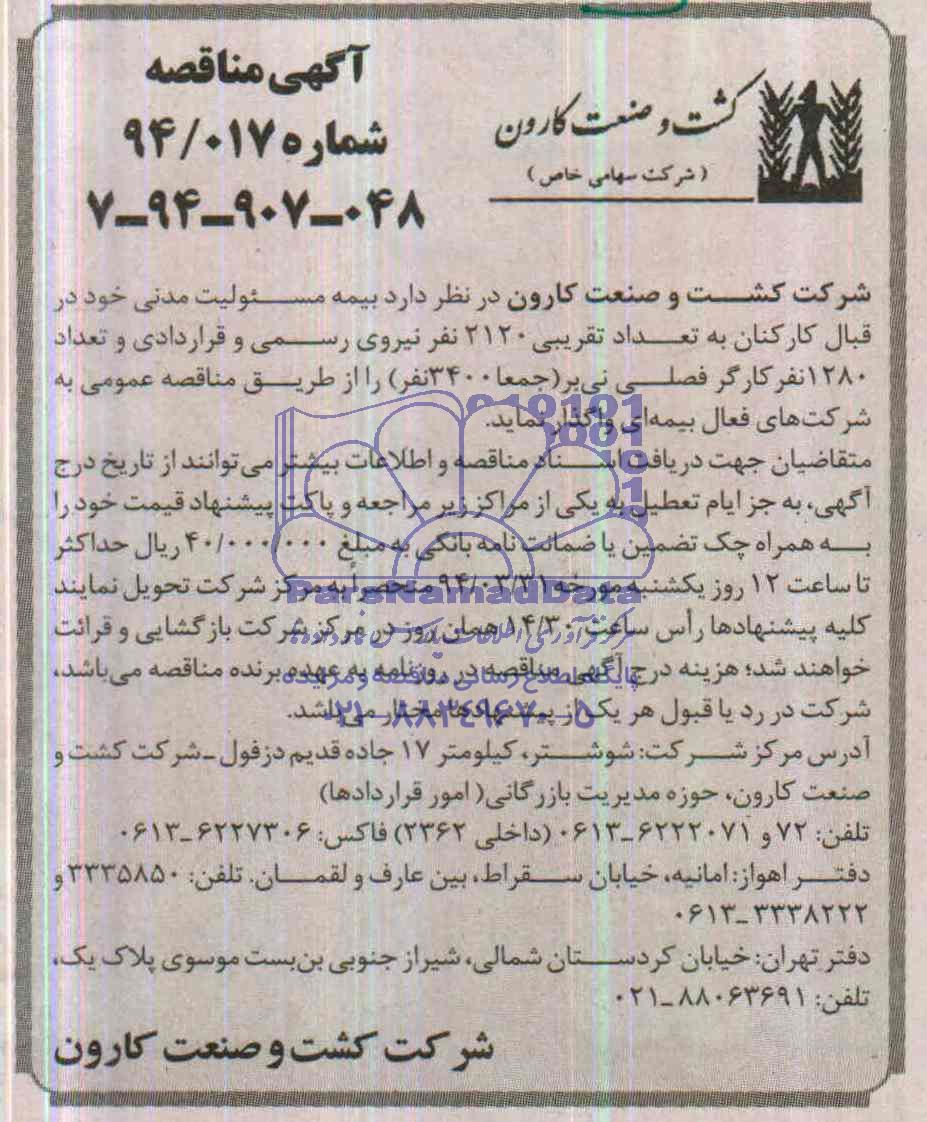 آگهی مناقصه
شماره ۹۴/۰۱۷
۷ـ۹۴ـ۹۰۷ـ۰۴۸
کشت و صنعت کارون
(شرکت سهامی خاص)
شرکت کشت و صنعت کارون در نظر دارد بیمه مسئولیت مدنی خود در
قبال کارکنان به تعداد تقریبی ۲۱۲۰ نفر نیروی رسمی و قراردادی و تعداد
۱۲۸۰نفر کارگر فصلی نی‌بر(جمعا ۳۴۰۰نفر) را از طریق مناقصه عمومی به
شرکت‌های فعال بیمه‌ای واگذار نماید.
متقاضیان جهت دریافت اسناد مناقصه و اطلاعات بیشتر می‌توانند از تاریخ درج
آگهی، به جز ایام تعطیل به یکی از مراکز زیر مراجعه و پاکت پیشنهاد قیمت خود را
به همراه چک تضمین یا ضمانت نامه بانکی به مبلغ ۴۰/۰۰۰/۰۰۰ ریال حداکثر
تا ساعت ۱۲ روز یکشنبه مورخه ۹۴/۰۳/۳۱ منحصراً به مرکز شرکت تحویل نمایند
کلیه پیشنهادها رأس ساعت ۱۴/۳۰ همان روز در مرکز شرکت بازگشایی و قرائت
خواهند شد؛ هزینه درج آگهی مناقصه در روزنامه به عهده برنده مناقصه می‌باشد،
شرکت در رد یا قبول هر یک از پیشنهادها مختار می‌باشد.
آدرس مرکز شرکت: شوشتر، کیلومتر ۱۷ جاده قدیم دزفول ـ شرکت کشت و
صنعت کارون، حوزه مدیریت بازرگانی( امور قراردادها)
تلفن: ۷۲ و ۶۲۲۲۰۷۱ـ۰۶۱۳ (داخلی ۲۳۶۲) فاکس: ۶۲۲۷۳۰۶ـ۰۶۱۳
دفتر اهواز: امانیه، خیابان سقراط، بین عارف و لقمان. تلفن: ۳۳۳۵۸۵۰ و
۳۳۳۸۲۲۲ـ۰۶۱۳
دفتر تهران: خیابان کردستان شمالی، شیراز جنوبی بن‌بست موسوی پلاک یک،
تلفن: ۸۸۰۶۳۶۹۱ـ۰۲۱
شرکت کشت و صنعت کارون
ParsNamadData
پایگاه اطلاع رسانی مناقصه و مزایده
۰۲۱-۸۸۳۴۹۶۷۰-۵